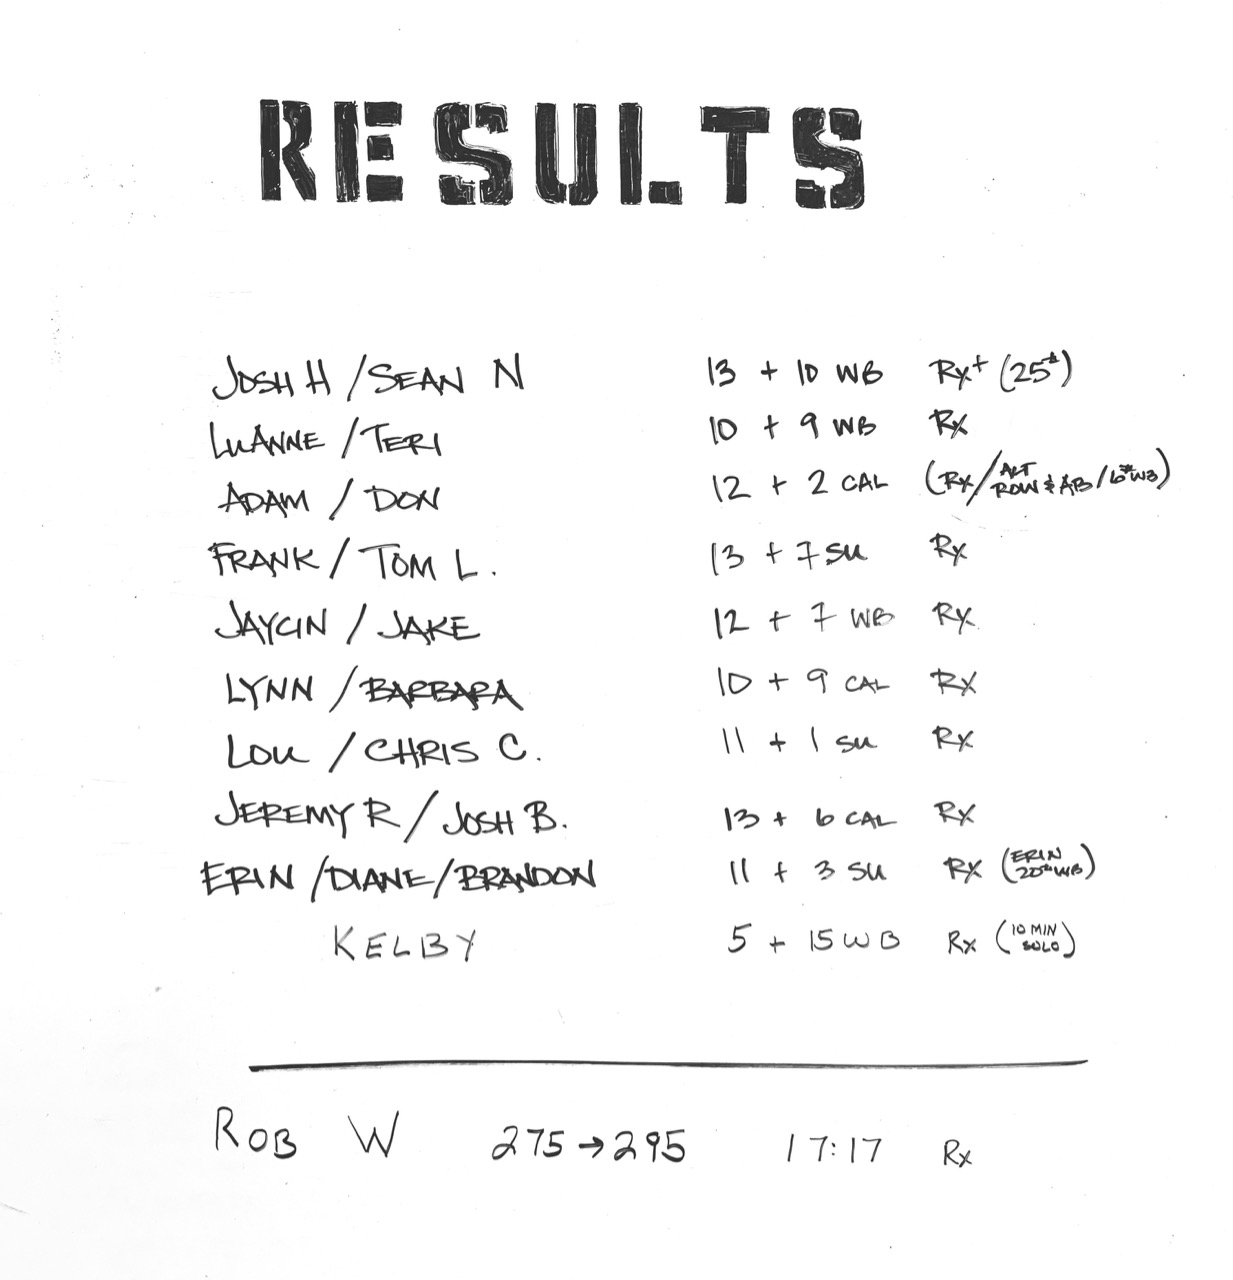 RESULTS
JOSH H / SEAN N 13 + 10 WB Rx+ (25#)
LUANNE / TERI 10 + 9 WB Rx
ADAM / DON 12 + 2 CAL (Rx / ALT ROW & AB / 6# WB)
FRANK / TOM L. 13 + 7 SU Rx
JAYCIN / JAKE 12 + 7 WB Rx
LYNN / BARBARA 10 + 9 CAL Rx
LOU / CHRIS C. 11 + 1 SU Rx
JEREMY R / JOSH B. 13 + 6 CAL Rx
ERIN / DIANE / BRANDON 11 + 3 SU Rx (ERIN 20# WB)
KELBY 5 + 15 WB Rx (10 MIN SOLO)
ROB W 275→295 17:17 Rx